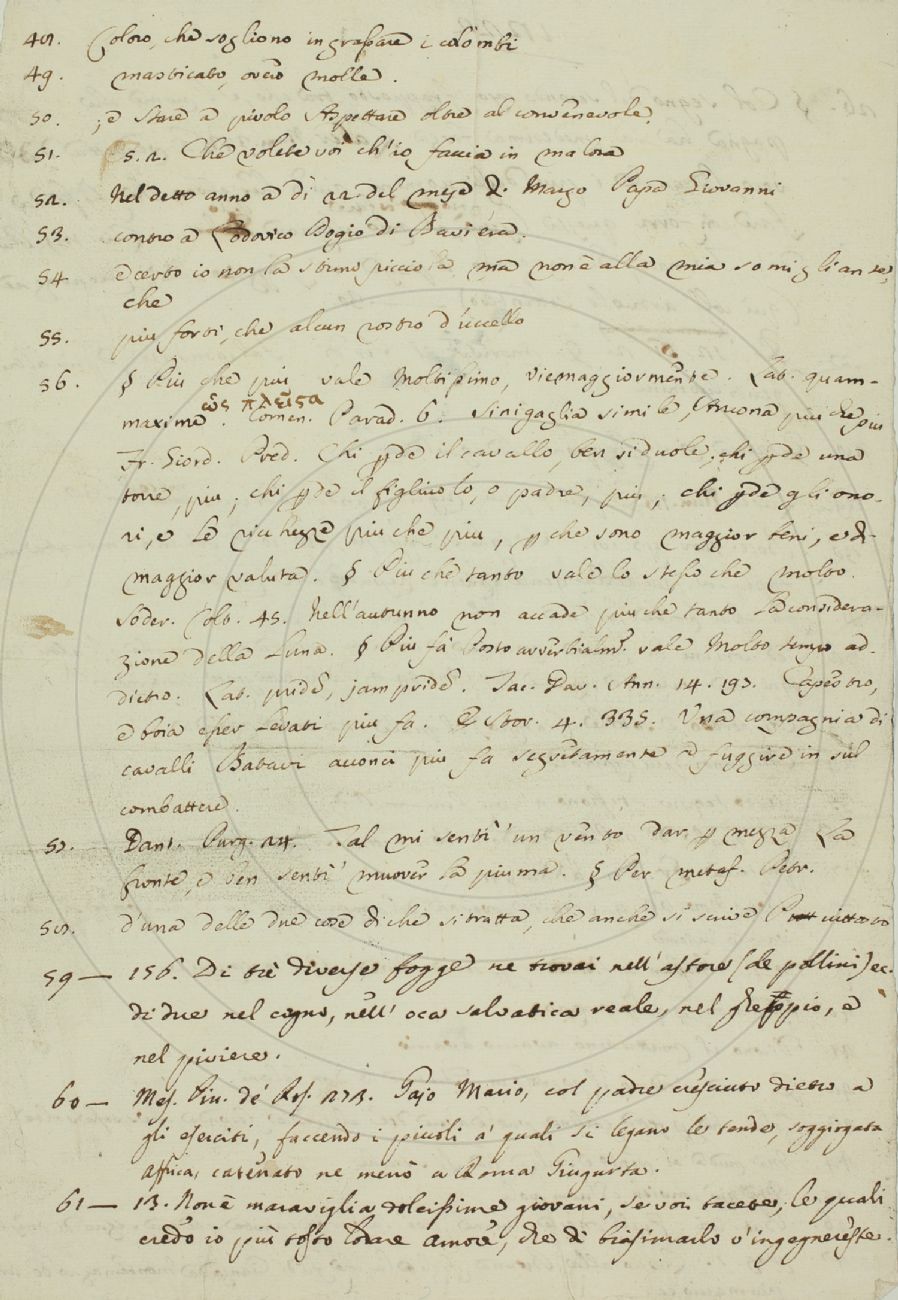 48. Coloro, che sogliono ingrassare i colombi
49. masticato, ovvero molle.
50. ; e stare a pivolo Aspettare oltre al convenevole.
51. s. 2. Che volete voi ch'io faccia in malora
52. Nel detto anno a dì 22 del mese di Marzo Papa Giovanni
53. contro a Lodovico Dogio di Baviera.
54 e certo io non la stimo picciola, ma non è alla mia somigliante,
che
55. più forti, che alcun rostro d'uccello
56. § Più che più vale Moltissimo, viemaggiormente. Lat. quam-
ὡς πλεῖσα
maxime. Comen. Parad. 6. Sinigaglia simile, Ancona più che più
Fr. Giord. Pred. Chi pde il cavallo, ben si duole; chi pde una
torre, più; chi pde il figliuolo, o padre, più; chi pde gli ono-
ri, e le ricchezze più che più, p che sono maggior beni, e di
maggior valuta. § Più che tanto vale lo stesso che molto.
Soder. Colt. 45. Nell'autunno non accade più che tanto la considera-
zione della Luna. § Più fà Posto avverbialm. vale Molto tempo ad-
dietro. Lat. pridē, jampridē. Tac. Dav. Ann. 14. 193. Capestro,
e boia esser levati più fa. E Stor. 4. 335. Una compagnia di
cavalli Batavi acconci più fa segretamente a fuggire in sul
combattere.
57. Dant. Purg. 24. Tal mi sentì un vento dar p mezza La
fronte, e ben sentì muover la piuma. § Per metaf. Petr.
58. d'una delle due cose di che si tratta, che anche si scrive
59 — 156. Di trè diverse fogge ne trovai nell'astore (de pollini) ec.
di due nel cigno, nell'oca salvatica reale, nel, e
nel piviere.
60 — Mes. Piu. dé Ros. 273. Gajo Mario, col padre cresciuto dietro a
gli eserciti, faccendo i pivoli a' quali si legano le tende, soggiogata
Affrica, catenato ne menò a Roma Giugurta.
61 — 13. Non è maraviglia dolcissime giovani, se voi tacete, le quali
credo io più tosto lodare amore, che di biasimarlo v'ingegnereste.